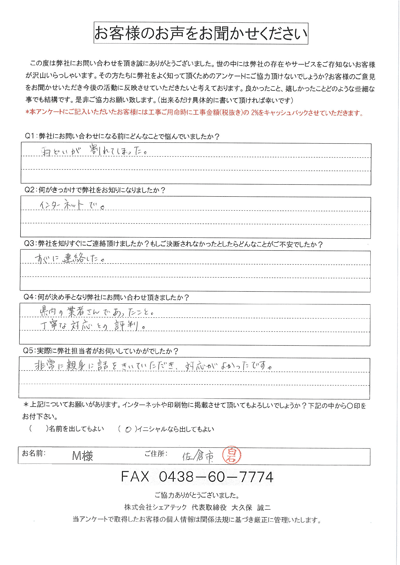 お客様のお声をお聞かせください
この度は弊社にお問い合わせを頂き誠にありがとうございました。世の中には弊社の存在やサービスをご存知ないお客様
が沢山いらっしゃいます。その方たちに弊社をよく知って頂くためのアンケートにご協力頂けないでしょうか?お客様のご意見
をお聞かせいただき今後の活動に反映させていただきたいと考えております。良かったこと、嬉しかったことどのような些細な
事でも結構です。是非ご協力お願い致します。(出来るだけ具体的に書いて頂ければ幸いです)
*本アンケートにご記入いただいたお客様には工事ご用命時に工事金額(税抜き)の2%をキャッシュバックさせていただきます。
Q1:弊社にお問い合わせになる前にどんなことで悩んでいましたか?
雨どいが割れてしまった。
Q2:何がきっかけで弊社をお知りになりましたか?
インターネットで。
Q3:弊社を知りすぐにご連絡頂けましたか?もしご決断されなかったとしたらどんなことがご不安でしたか?
すぐに連絡した。
Q4:何が決め手となり弊社にお問い合わせ頂きましたか?
県内の業者さんであったこと。
丁寧な対応との評判。
Q5:実際に弊社担当者がお伺いしていかがでしたか?
非常に親身に話をきいていただき、対応がよかったです。
*上記についてお願いがあります。インターネットや印刷物に掲載させて頂いてもよろしいでしょうか?下記の中から〇印を
お付下さい。
( )名前を出してもよい (〇)イニシャルなら出してもよい
お名前: M様 ご住所: 佐倉市
FAX 0438-60-7774
ご協力ありがとうございました。
株式会社シェアテック 代表取締役 大久保 誠二
当アンケートで取得したお客様の個人情報は関係法規に基づき厳正に管理いたします。